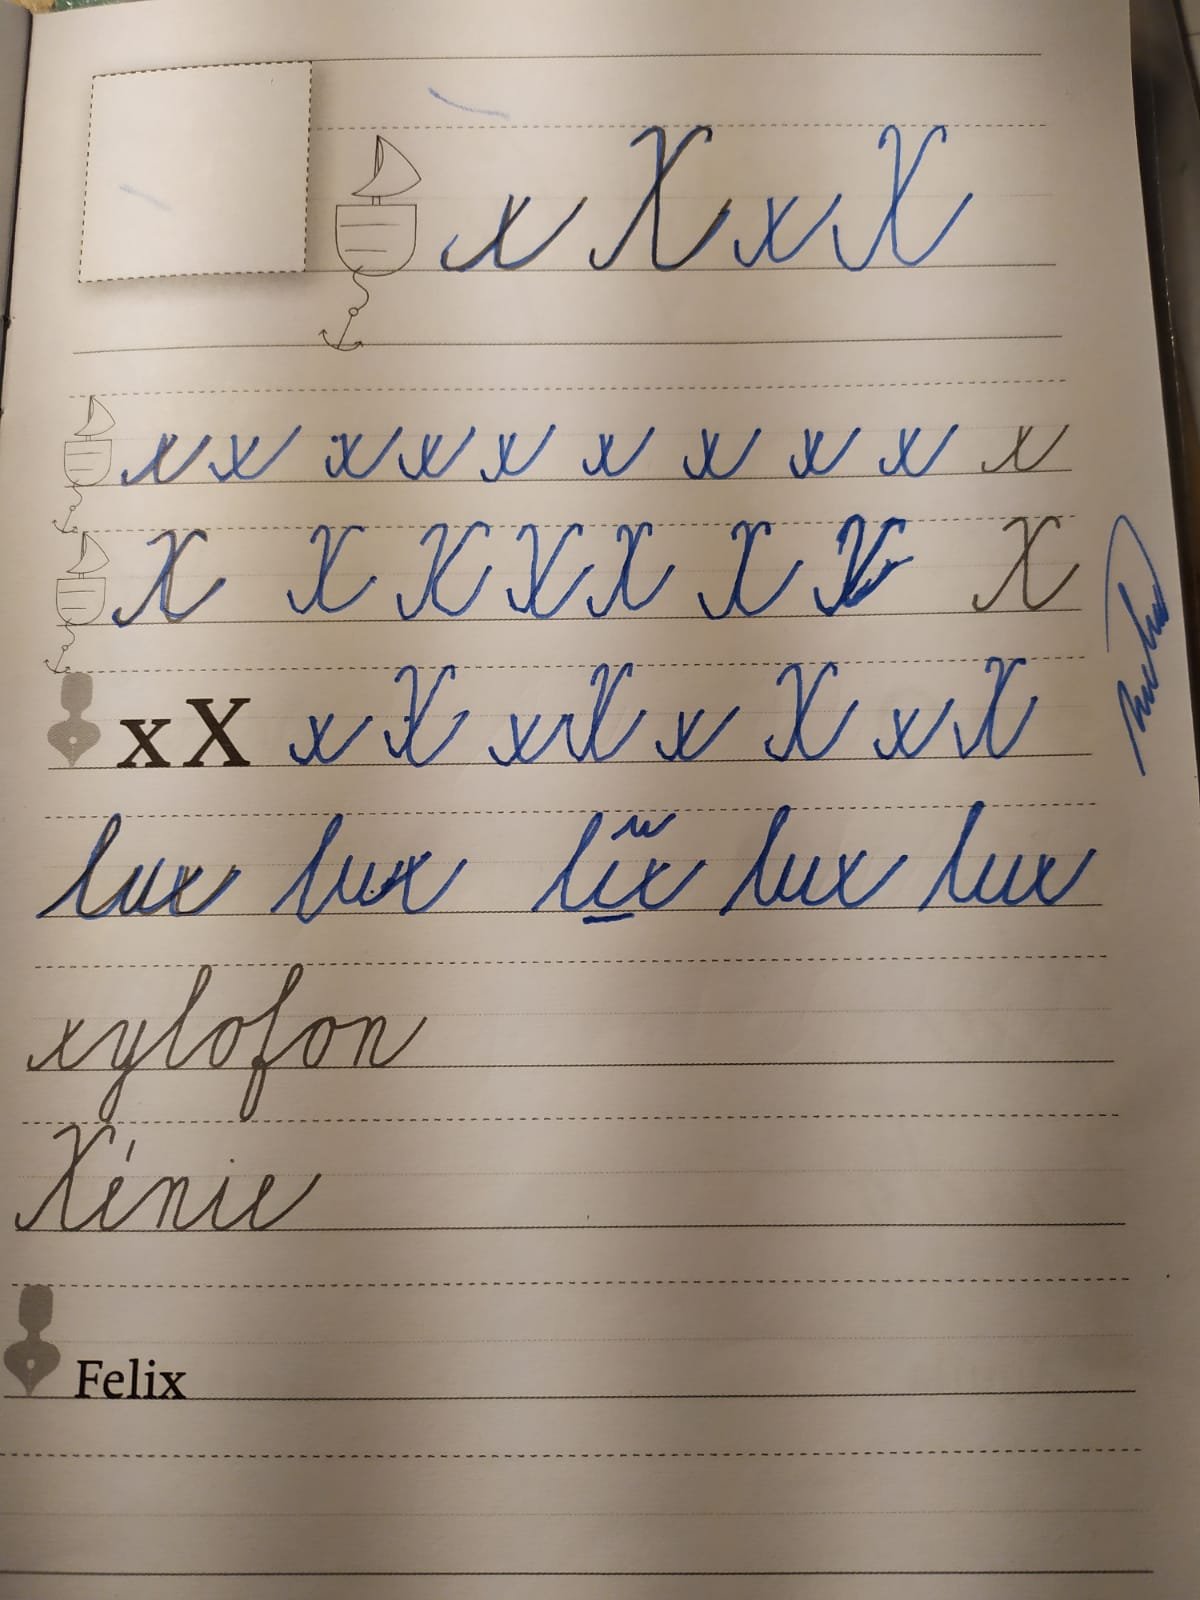 x X x X
x x x x x x x x x x
X X X X X X X X
x X x X x X x X x X
lux lux lix lux lux
xylofon
Xénie
Felix